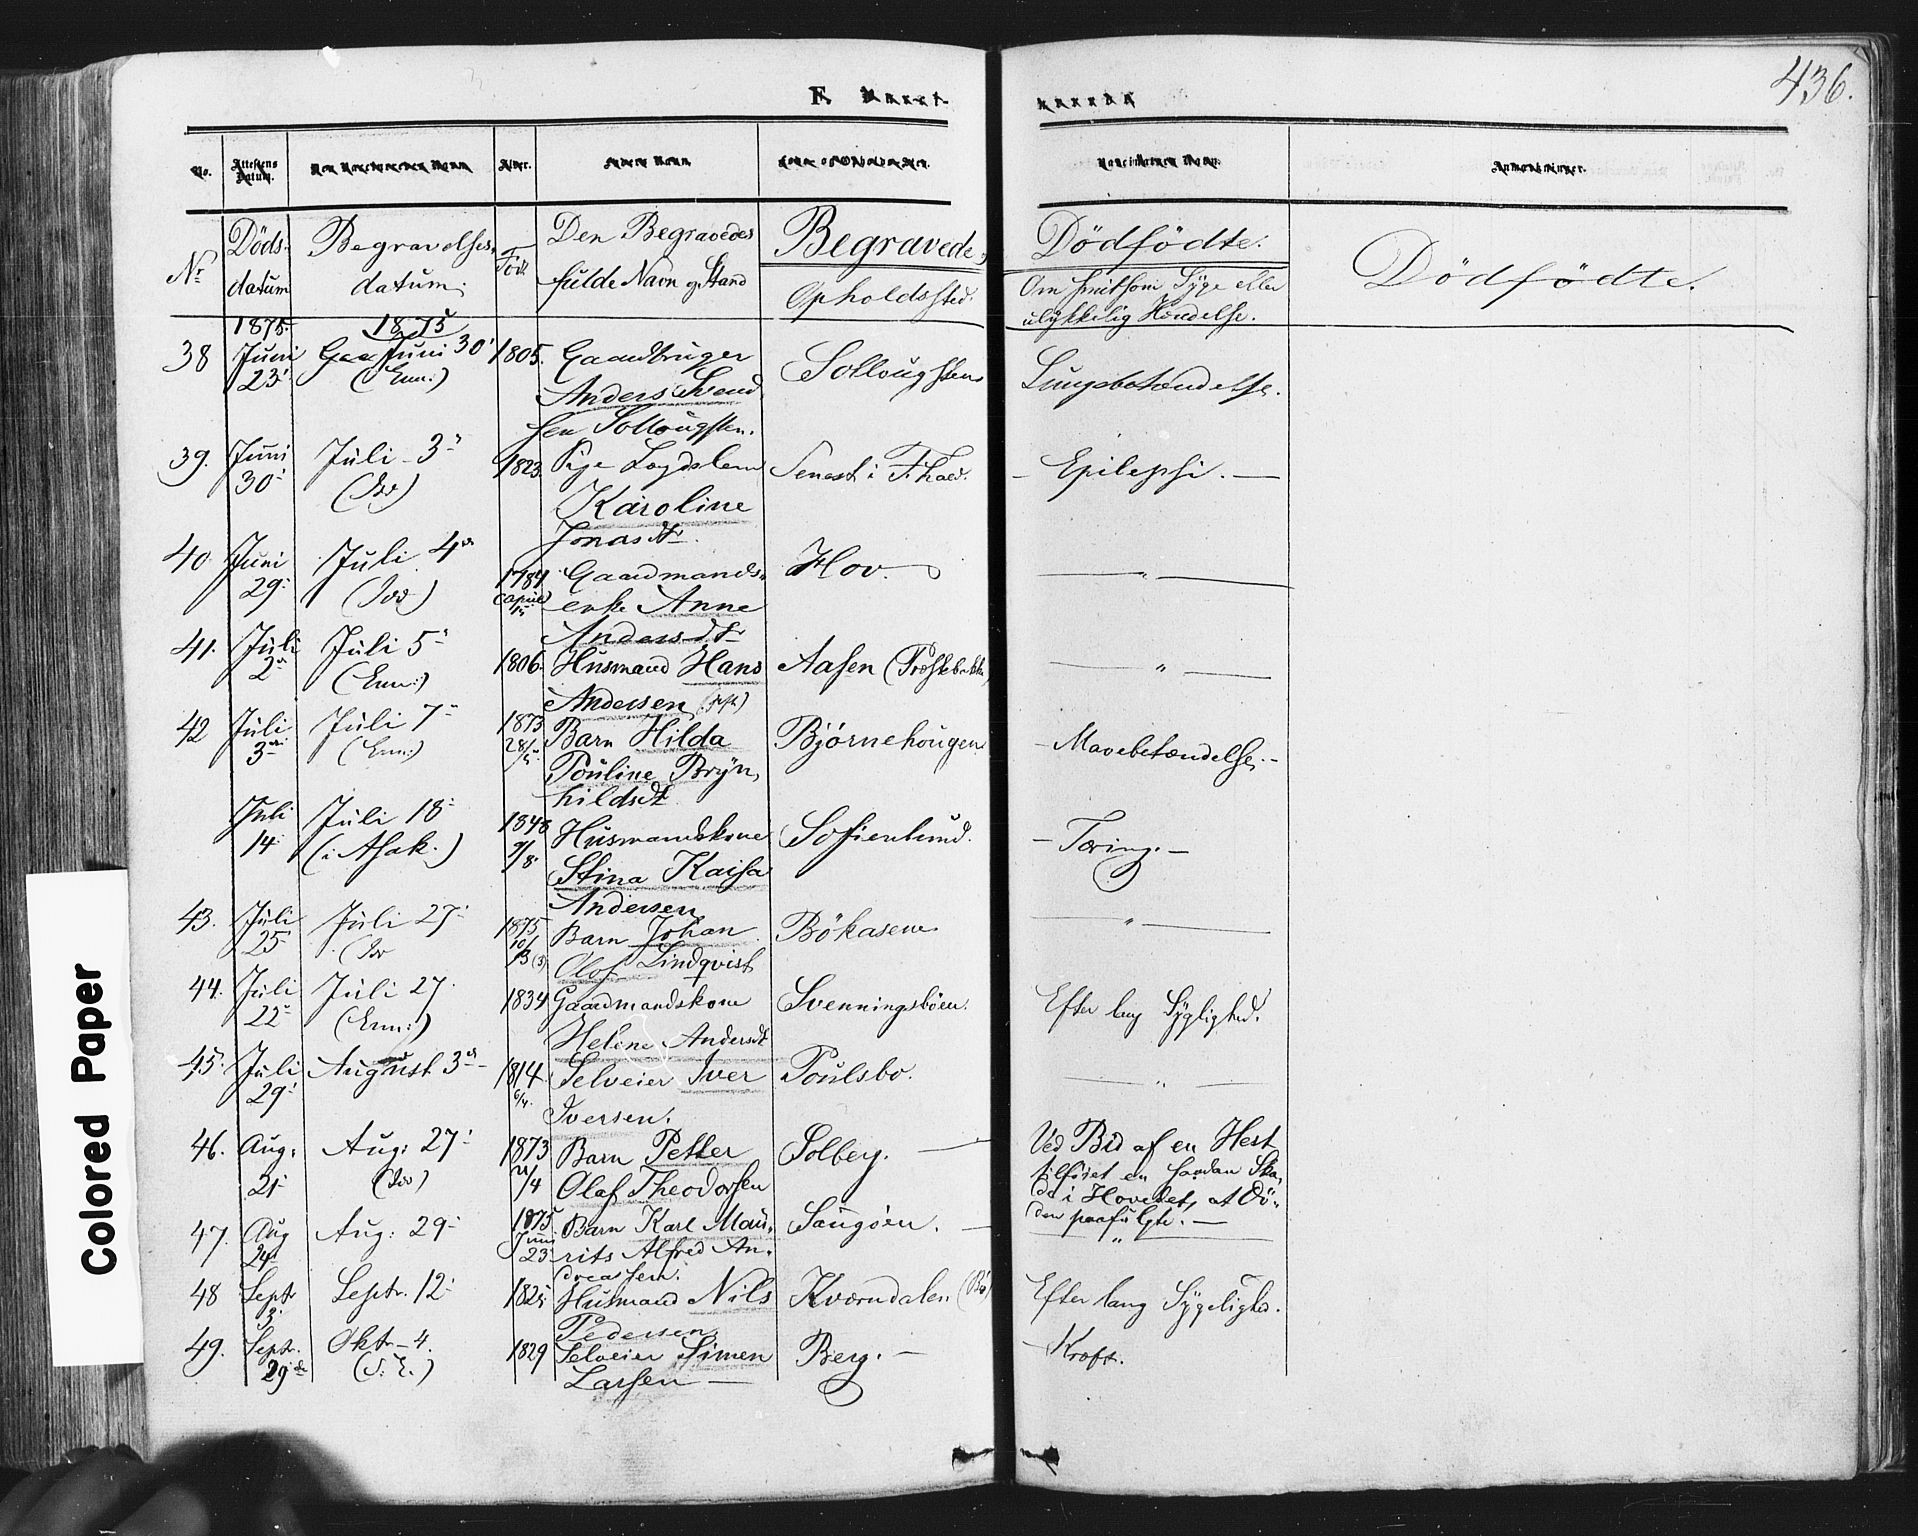 436.
No. Attestens Datum.
Nr. Døds-datum Begravelses-datum. Född Den Begravedes fulde Navn og Stand Begravede. Opholdssted. Dödfödte. Om smitsom Syge eller ulykkelig Hendelse. Dödfödte.
1875. 1875
38 Juni 23' Juni 30' (Enn:) 1805. Gaardbruger Anders Svendsen Sollougsten. Sollougsten Lungebetændelse.
39. Juni 30' Juli 3' 1823. Pige Karoline Jonasdtr. Senest i Fr.hald. Epilepsi.
40. Juni 29' Juli 4de (Idd) 1784 (April 15 Gaardmands-enke Anne Andersdtr Hov. "
41. Juli 2' Juli 5' (Enn:) 1806. Husmand Hans Andersen Aasen "
42 Juli 3die Juli 7' (Enn:) 1873 Barn Hilda Pouline Brynhildsdt. Bjørnehougen Mavebetændelse.
Juli 14. Juli 18' (i Asak.) 1848 9/8. Husmandskone Stina Kaisa Andersen Sofienlund. Tæring.
43. Juli 25' Juli 27' 1875 Barn Johan Olof Lindqvist Bökasene "
44. Juli 22' Juli 27. (Enn:) 1834 Gaardmandskone Helene Andersdt Svenningsböen. Efter lang Sygelighed.
45. Juli 29' August 3de 1814 6/4. Selveier Iver Iversen. Poulsbo. "
46. Aug. 21' Aug: 27' (Idd) 1873 21/4 Barn Petter Olaf Theodorsen Solberg. Ved Bid af en Hest tilföiet en saadan Skade i Hovedet, at Döden paafulgte.
47. Aug 24' Aug: 29' 1875 Juni 23' Barn Karl Mourits Alfred Andreassen. Saugöen. "
48 Septr 3' Septr. 12' Husmand Nils Pedersen Kværndalen (Bö) Efter lang Sygelighed.
49. Septr. 29de Oktr. 4. 1829 Selveier Simen Larsen Berg. Kræft.
Colored Paper